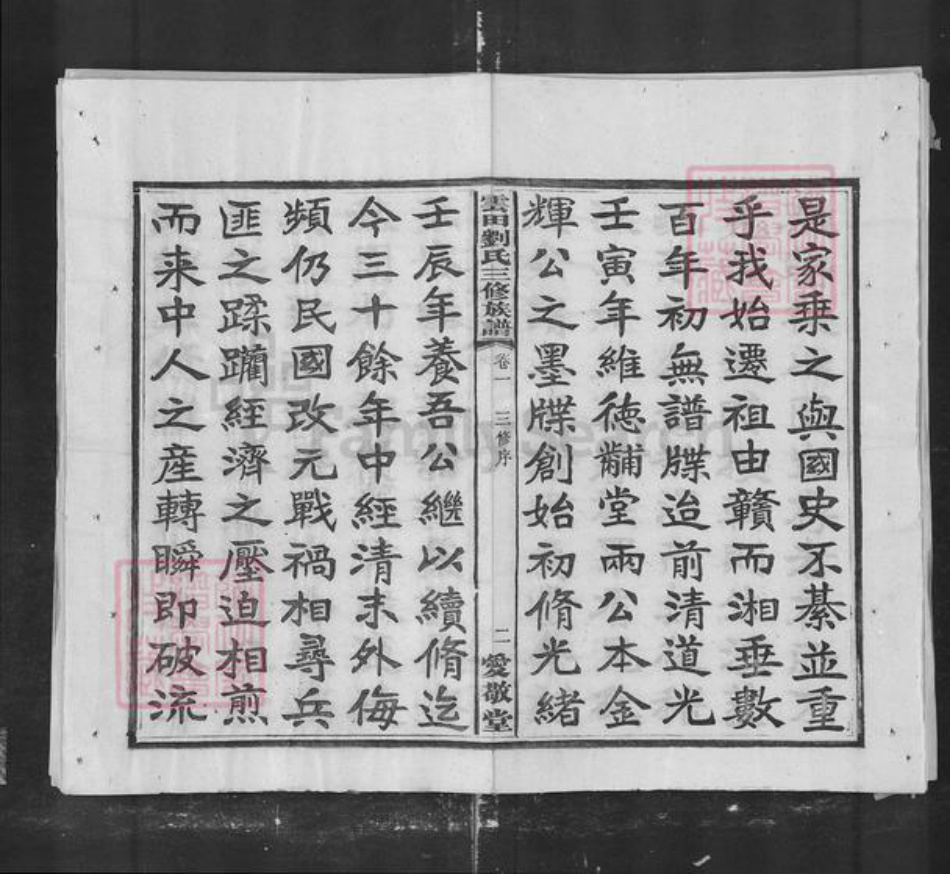 是家乗之與國史不綦並重
乎我始遷祖由贛而湘垂數
百年初無譜牒迨前清道光
壬寅年維德黼堂兩公本金
輝公之墨牒創始初脩光緒
雲田劉氏三修族譜 卷一 三修序 二 愛敬堂
壬辰年養吾公繼以續脩迄
今三十餘年中經清末外侮
頻仍民國改元戰禍相尋兵
匪之蹂躪經濟之壓迫相煎
而来中人之産轉瞬即破流
FamilySearch